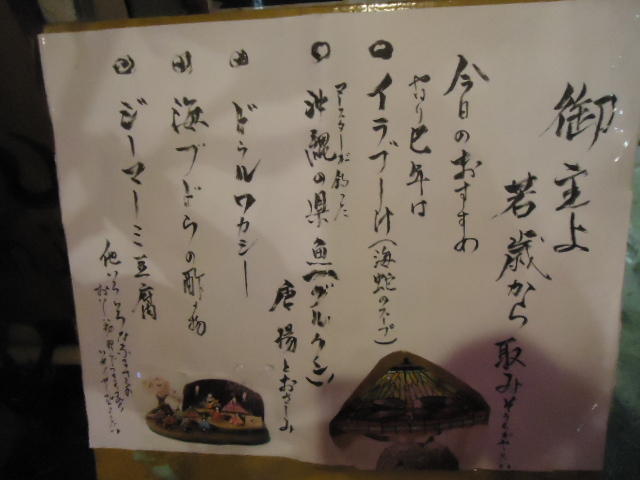 御主よ
若歳から 取み
今日のおすすめ
やり巳年は
イラブー汁(海蛇のスープ)
マースターが釣った
沖縄の県魚(グルクン)
唐揚とおさしみ
ドゥルワカシー
海ブドウの酢物
ジーマーミ豆腐
他いろいろな